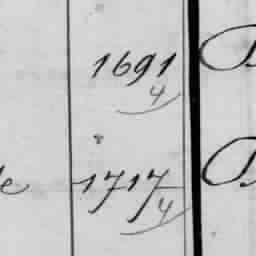 1691
4
1717
4